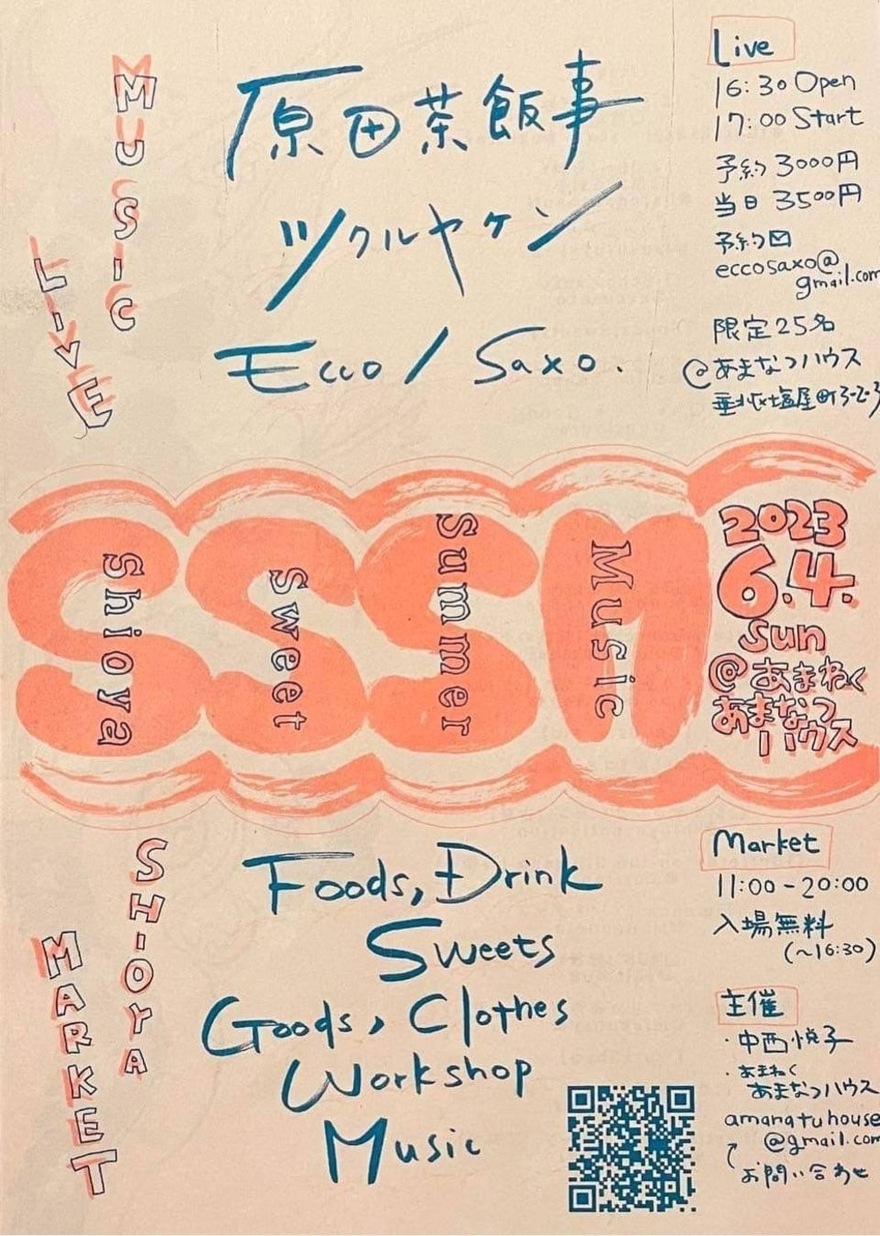 MUSIC
LIVE
原田茶飯事
ツクルヤケン
Ecco / Saxo.
Live
16:30 Open
17:00 Start
予約 3000円
当日 3500円
予約✉
eccosaxo@
gmail.com
限定25名
@あまなつハウス
垂水区塩屋町3-2-3
SSSM
Shioya
Sweet
Summer
Music
2023
6.4.
Sun
@あまねく
あまなつ
ハウス
SHIOYA
MARKET
Foods, Drink
Sweets
Goods, Clothes
Workshop
Music
Market
11:00-20:00
入場無料
(~16:30)
主催
・中西悦子
・あまねく
あまなつハウス
amanatuhouse
@gmail.com
お問い合わせ